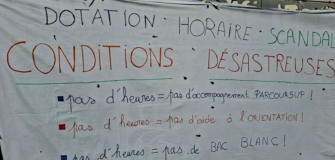 DOTATION · HORAIRE · SCANDAL
CONDITIONS DÉSASTREUSES
pas d'heures = pas d'accompagnement PARCOURSUP !
pas d'heures = pas d'aide à l'ORIENTATION !
pas d'heures = pas de BAC BLANC !